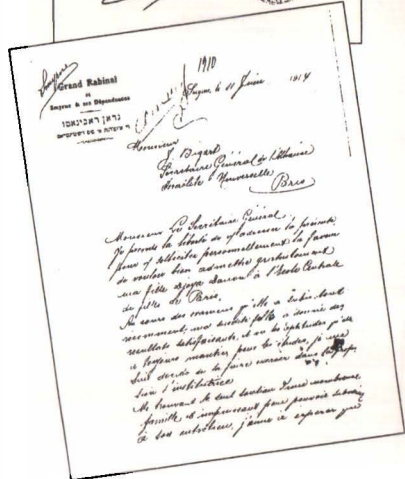 1910
Smyrne
Grand Rabinat
DE
Smyrne & ses Dépendances
גראן ראבינאטו
Smyrne, le 11 Juin 1914
Monsieur
J. Bigart
Secrétaire Général de l'Alliance
Israélite Universelle
Paris
Monsieur Le Secrétaire Général,
Je prends la liberté de adresser la présente
pour solliciter personnellement la faveur
de vouloir bien admettre gratuitement
ma fille à l'Ecole Centrale
de filles de Paris.
Au cours des examens qu'elle a subis tout
récemment, ma fille a donné des
résultats satisfaisants, et vu les aptitudes qu'elle
a toujours pour les études, je me
suis décidé de la faire entrer dans la
sion d'institutrice
Me trouvant le seul soutien d'une nombreuse
famille et impuissant pour pouvoir
à son entretien, j'aime à espérer que